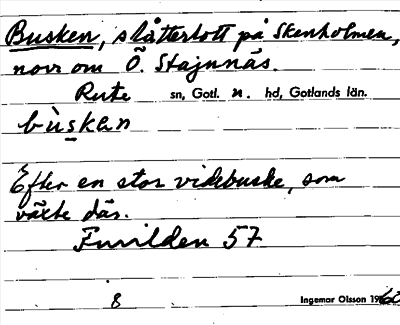 Busken, slåtterlott på Skenholmen,
norr om Ö. Stajnnäs.
Rute sn, Gotl. n. hd, Gotlands län.
bùsken
Efter en stor videbuske, som
växte där.
Furilden 57
8 Ingemar Olsson 1960